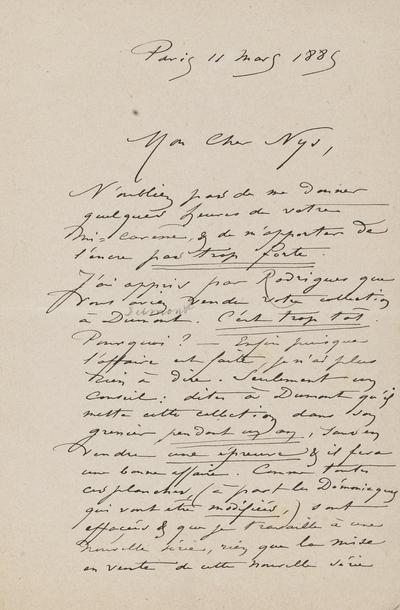 Paris 11 mars 1885
Mon Cher Nys,
N'oubliez pas de me donner
quelques heures de votre
mi-carême, & de m'apporter de
l'encre pas trop forte.
J'ai appris par Rodrigues que
vous aviez vendu votre collection
Dumont
à Dumont. C'est trop tôt.
Pourquoi ? — Enfin puisque
l'affaire est faite, je n'ai plus
rien à dire. Seulement un
conseil: dites à Dumont qu'il
mette cette collection dans son
grenier pendant un an, sans en
vendre une épreuve & il fera
une bonne affaire. Comme toutes
ces planches, (à part les Démoniaques
qui vont être modifiées,) sont
effacées & que je travaille à une
nouvelle série, rien que la mise
en vente de cette nouvelle série